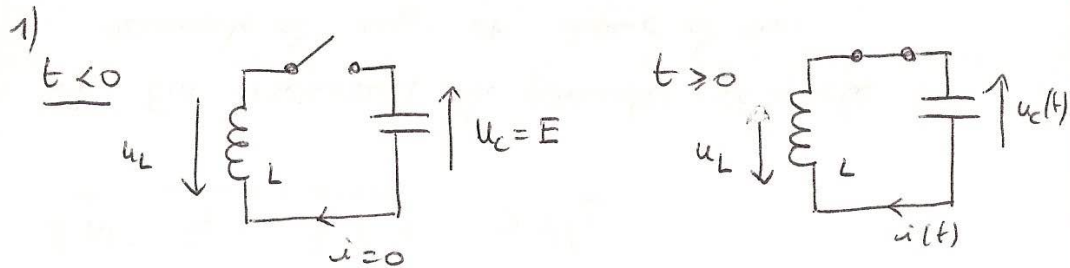 1)
t < 0
u_L
L
u_C = E
i = 0
t ⩾ 0
u_L
L
u_C(t)
i(t)